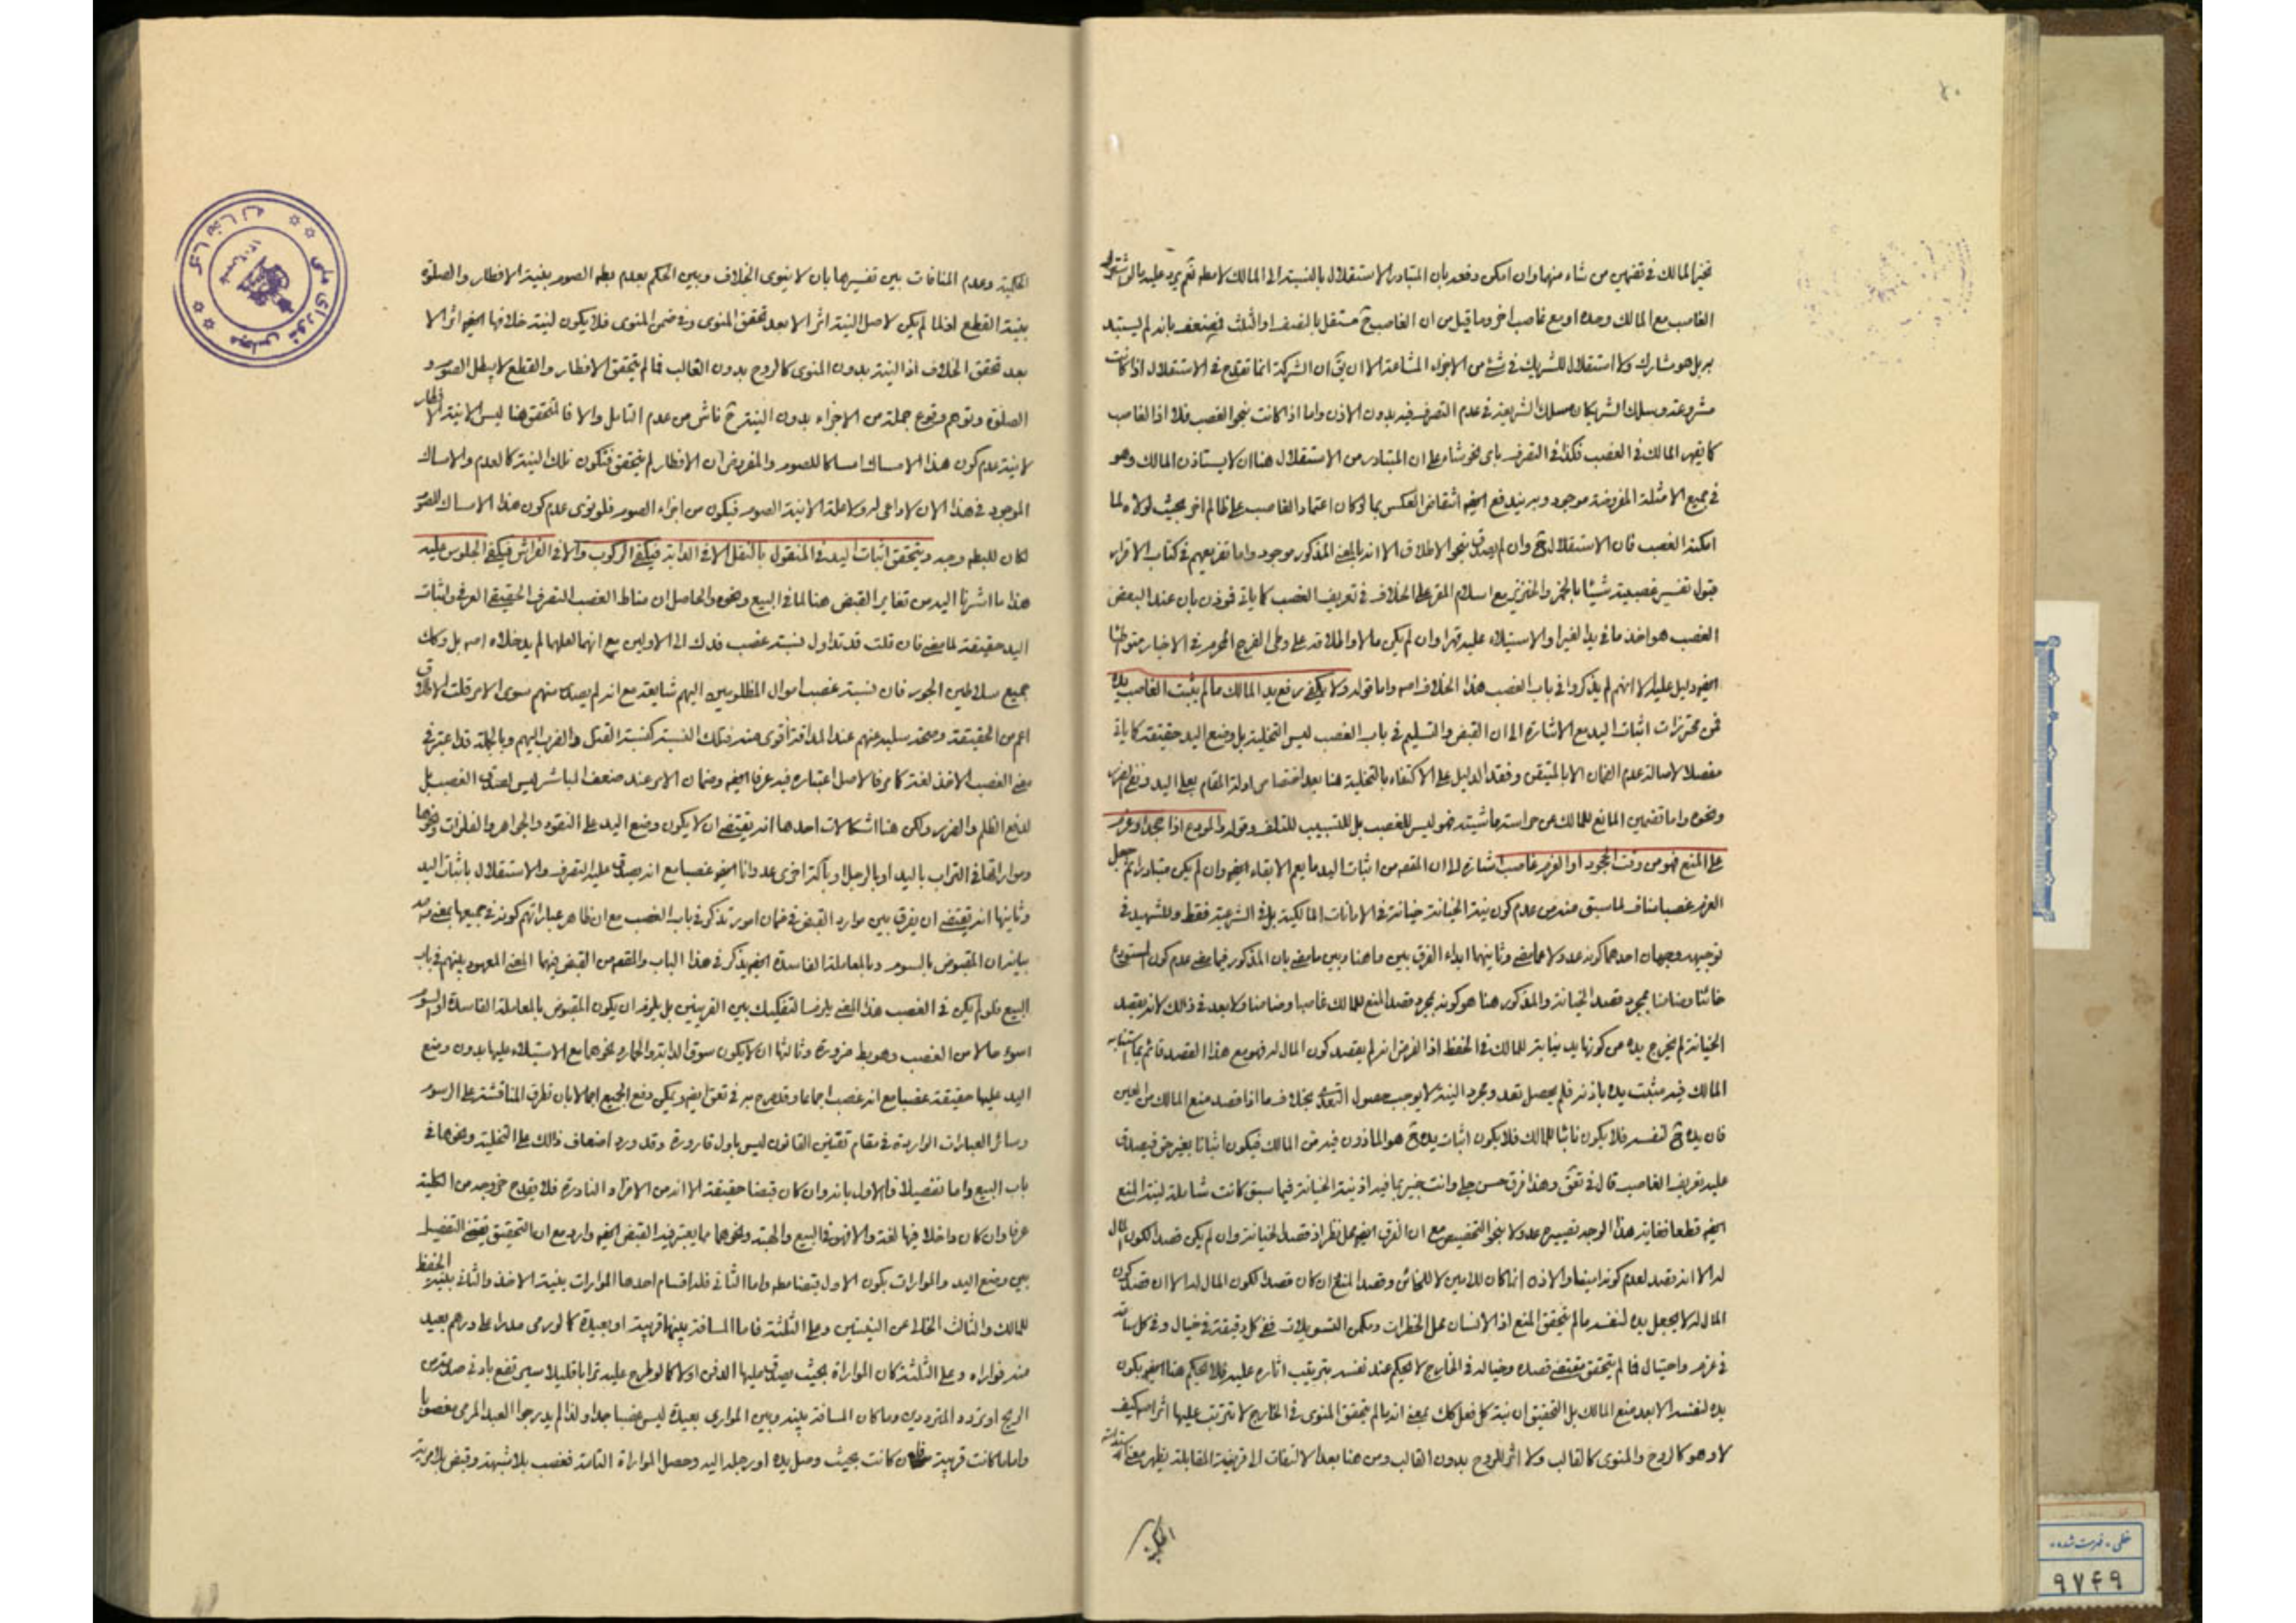 تخير المالك في تضمين من شاء منهما وان امكن دفعه بان المتبادر الاستقلال بالنسبة الى المالك لا مطلقا نعم يرد عليه
الغاصب مع المالك وحده او مع غاصب اخر وما قيل من ان الغاصب ح مستقل بالنصف او الثلث فيضعف بانه لم يستبد
به بل هو مشارك ولا استقلال للشريك في شئ من الاجزاء المشاعة الا ان يق ان الشركة انما تقدح في الاستقلال اذا كانت
مشروعة وسلك الشريكان مسلك الشريعة في عدم التصرف فيه بدون الاذن واما اذا كانت بنحو الغصب فلا اذ الغاصب
كما يقهر المالك في الغصب فكذا في التصرف باى نحو شاء على ان المتبادر من الاستقلال هنا ان لا يستاذن المالك وهو
في جميع الامثلة المفروضة موجود وبه يندفع ايضا انتقاض العكس بما لو كان اعتماد الغاصب على ظالم اخر بحيث لولاه لما
امكنه الغصب فان الاستقلال له ح وان لم يصدق بنحو الاطلاق الا انه بالمعنى المذكور موجود واما تفريعهم في كتاب الاقرار
قبول تفسير غصبته شيئا بالخمر والخنزير مع اسلام المقر على الخلاف في تعريف الغصب كما ياتي فوذن بان عند البعض
الغصب هو اخذ ما في يد الغير او الاستيلاء عليه قهرا وان لم يكن مالا واطلاقه على وطى الفرج المحرم في الاخبار
ايضا دليل عليه الا انهم لم يذكروا في باب الغصب هذا الخلاف اصلا واما قوله ولا يكفي رفع يد المالك ما لم يثبت الغاصب يده
فمن محترزات اثبات اليد مع الاشارة الى ان القبض والتسليم في باب الغصب ليس التخلية بل وضع اليد حقيقة كما ياتي
مفصلا لاصالة عدم الضمان الا بالمتيقن وفقد الدليل على الاكتفاء بالتخلية هنا بعد اختصاص ادلة المقام بعلى اليد
ونحوه واما تضمين المانع للمالك من حراسة ماشيته فهو ليس للغصب بل للتسبيب للتلف وقوله والمودع اذا جحد او عزم
على المنع فهو من وقت الجحود او العزم غاصب اشارة الى ان المقصود من اثبات اليد ما يعم الابقاء ايضا وان لم يكن متبادرا ثم جعل
العزم غصبا مناف لما سبق منه من عدم كون نية الخيانة خيانة في الامانات المالكية بل في الشرعية فقط وللشهيد في
توجيهه وجهان احدهما كونه عدولا عما مضى وثانيهما ابداء الفرق بين ما هنا وبين ما مضى بان المذكور فيما مضى عدم كون المستودع
خائنا وضامنا بمجرد قصد الخيانة والمذكور هنا هو كونه بمجرد قصد المنع للمالك غاصبا وضامنا ولا بعد في ذلك لانه بقصد
الخيانة لم يخرج يده من كونها يد نيابة للمالك في الحفظ اذ الفرض انه لم يقصد كون المال له فهو مع هذا القصد قائم
المالك فيه مثبت يده باذنه فلم يحصل تعد ومجرد النية لا يوجب حصول التعدى بخلاف ما اذا قصد منع المالك من العين
فان يده ح لنفسه فلا يكون نائبا للمالك فلا يكون اثبات يده ح هو الماذون فيه من المالك فيكون اثباتا بغير حق فيصدق
عليه تعريف الغاصب قال في تعق وهذا فرق حسن جلي وانت خبير بما فيه اذ نية الخيانة فيما سبق كانت شاملة لنية المنع
ايضا قطعا فغاية هذا الوجه تصييره عدولا بنحو التخصيص مع ان الفرق ايضا محل نظر اذ قصد الخيانة وان لم يكن قصدا لكون المال
له الا انه قصد لعدم كونه امينا والاذن انما كان للامين لا للخائن وقصد المنع ان كان قصدا لكون المال له الا ان قصد كون
المال له لا يجعل يده لنفسه ما لم يتحقق المنع اذ الانسان محل الخطرات ومكمن التسويلات ففي كل دقيقة في خيال وفي كل
في عزم واحتيال فما لم يتحقق مقتضى قصده وخياله في الخارج لا يحكم عند نفسه بترتيب اثاره عليه فلا يحكم هنا ايضا بكون
يده لنفسه الا بعد منع المالك بل التحقيق ان نية كل فعل كك بمعنى انه ما لم يتحقق المنوى في الخارج لا تترتب عليها اثر اصلا كيف
لا وهو كالروح والمنوى كالقالب ولا اثر للروح بدون القالب ومن هنا بعد الالتفات الى قرينة المقابلة يظهر معنى
الحكمية وعدم المنافات بين تفسيرها بان لا ينوى الخلاف وبين الحكم بعدم بطلان الصوم بنية الافطار والصلوة
بنية القطع اذ لما لم يكن لاصل النية اثر الا بعد تحقق المنوى وفي ضمن المنوى فلا يكون لنية خلافها ايضا اثر الا
بعد تحقق الخلاف اذ النية بدون المنوى كالروح بدون القالب فما لم يتحقق الافطار والقطع لا يبطل الصوم و
الصلوة وتوهم وقوع جملة من الاجزاء بدون النية ح ناش من عدم التامل والا فالمتحقق هنا ليس الا نية الافطار
لا نية عدم كون هذا الامساك امساكا للصوم والمفروض ان الافطار لم يتحقق فتكون تلك النية كالعدم والامساك
الموجود في هذا الان لا داعى له ولا علة الا نية الصوم فيكون من اجزاء الصوم فلو نوى عدم كون هذا الامساك للصوم
لكان للبطلان وجه ويتحقق اثبات اليد في المنقول بالنقل الا في الدابة فيكفي الركوب والا في الفراش فيكفي الجلوس عليه
هذا ما اشرنا اليه من تغاير القبض هنا لما في البيع ونحوه والحاصل ان مناط الغصب التصرف الحقيقى العرفي واثبات
اليد حقيقة لما مضى فان قلت قد تداول نسبة غصب فدك الى الاولين مع انهما لعلهما لم يدخلاه اصلا بل وكك
جميع سلاطين الجور فان نسبة غصب اموال المظلومين اليهم شايعة مع انه لم يصدر منهم سوى الامر قلت الاطلاق
اعم من الحقيقة وصحة سلبه عنهم عند المداقة اقوى منه فتلك النسبة كنسبة القتل والضرب اليهم وبالجملة قد اعتبر في
معنى الغصب الاخذ لغة كما مر فالاصل اعتباره فيه عرفا ايضا وضمان الامر عند ضعف المباشر ليس لصدق الغصب بل
لدفع الظلم والضرر ولكن هنا اشكالات احدها انه يقتضى ان لا يكون وضع اليد على النقود والجواهر والفلزات ونحوها
ومواراتها في التراب باليد او بالرجل او بآلة اخرى عدوانا ايضا غصبا مع انه يصدق عليه التصرف والاستقلال باثبات اليد
وثانيها انه يقتضى ان يفرق بين موارد القبض في ضمان امور تذكر في باب الغصب مع ان ظاهر عباراتهم كونه في جميعها بمعنى
بيانه ان المقبوض بالسوم وبالمعاملة الفاسدة ايضا يذكر في هذا الباب والمقصود من القبض فيهما المعنى المعهود بينهم في باب
البيع فلو لم يكن في الغصب هذا المعنى يلزم التفكيك بين القرينين بل يلزم ان يكون المقبوض بالمعاملة الفاسدة او السوم
اسوء حالا من الغصب وهو بط ضرورة وثالثها ان لا يكون سوق الدابة والحمار ونحوهما مع الاستيلاء عليها بدون وضع
اليد عليها حقيقة غصبا مع انه غصب اجماعا وقد صرح به في تعق ايضا ويمكن دفع الجميع اجمالا بان تطرق المناقشة على الرسوم
وسائر العبارات الواردة في مقام تقنين القانون ليس باول قارورة وقد ورد اضعاف ذلك على التخلية ونحوها في
باب البيع واما تفصيلا فالاول بانه وان كان قبضا حقيقة الا انه من الافراد النادرة فلا يقدح خروجه من الكلية
عرفا وان كان داخلا فيها لغة والا فهو في البيع والهبة ونحوهما مما يعتبر فيه القبض ايضا وارد مع ان التحقيق يقتضى التفصيل
بين وضع اليد والموارات بكون الاول قبضا مطلقا واما الثاني فله اقسام احدها الموارات بنية الاخذ والثاني بنية الحفظ
للمالك والثالث الخالى عن النيتين وعلى الثلثة فاما المسافة بينها قريبة او بعيدة كما لو رمى مدرا على درهم بعيد
منه فواراه وعلى الثلثة كان المواراة بحيث يصدق عليها الدفن او لا كما لو طرح عليه ترابا قليلا سيرتفع بادنى صدمة من
الريح او تردد المترددين وما كان المسافة بينه وبين الموارى بعيدة ليس غصبا جدا ولذا لم يدرجوا العبد المرمى مغصوبا
واما ما كانت قريبة فان كانت بحيث وصل يده او رجله اليه وحصل المواراة التامة فغصب بلا شبهة وقبض بلا مرية
الحكمية
مجلس شوراى ملى
خطى - فهرست شده
٩٧٤٩